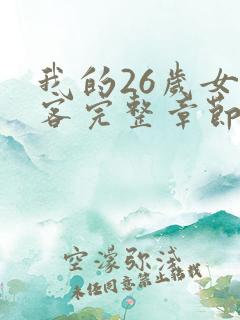 我的26歲女
客完整章節
空濛弥淺
未经同意禁止转载